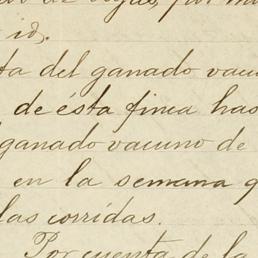 id.
ta del ganado vacu
de ésta finca has
ganado vacuno de
en la semana q
las corridas.
Por cuenta de la